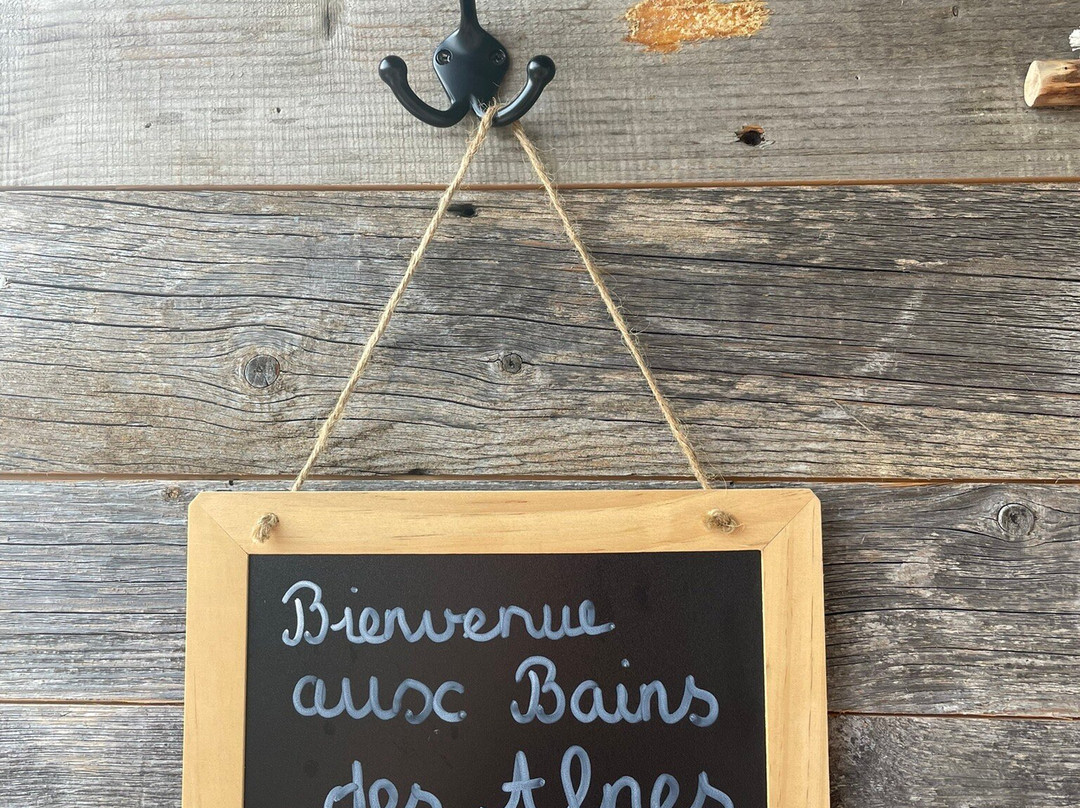 Bienvenue
aux Bains
des Alpes